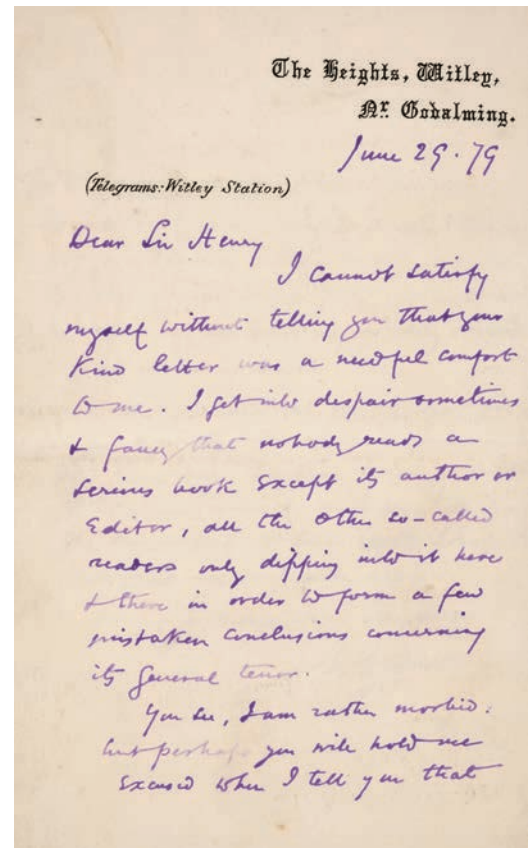 The Heights, Witley,
Nr. Godalming.
June 29. 79
(Telegrams: Witley Station)
Dear Sir Henry
I cannot satisfy
myself without telling you that your
kind letter was a needful comfort
to me. I get into despair sometimes
& fancy that nobody reads a
serious book except its author or
Editor, all the other so-called
readers only dipping into it here
& there in order to form a few
mistaken conclusions concerning
its general tenor.
You see, I am rather morbid:
but perhaps you will hold me
excused when I tell you that